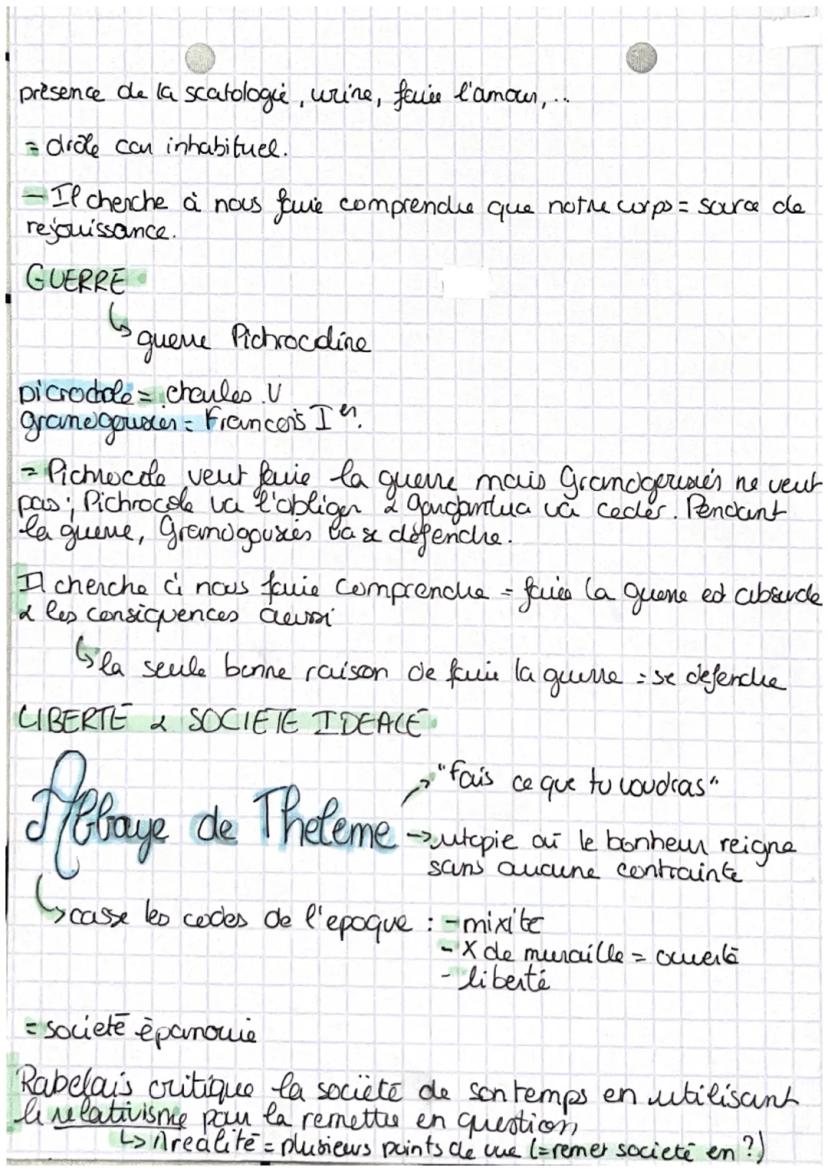 présence de la scatologie, urine, faire l'amour,...
= drôle car inhabituel.
- Il cherche à nous faire comprendre que notre corps = source de
rejouissance.
GUERRE
↳ guerre Pichrocoline
picrocole = charles V
grandgousier = Francois Ier.
= Pichrocole veut faire la guerre mais Grandgousier ne veut
pas ; Pichrocole va l'obliger & gargantua va ceder. Pendant
la guerre, Grandgousier va se défendre.
Il cherche à nous faire comprendre = faire la guerre est absurde
& les conséquences aussi
↳ la seule bonne raison de faire la guerre = se defendre
LIBERTÉ & SOCIETE IDEALE
→ "fais ce que tu voudras"
Abbaye de Theleme → utopie où le bonheur reigne
sans aucune contrainte
↳ casse les codes de l'epoque : - mixité
- X de muraille = ouverte
- liberté
= societé épanouie
Rabelais critique la société de son temps en utilisant
le relativisme pour la remettre en question
↳ 1 realité = plusieurs points de vue (= remet societé en ?)